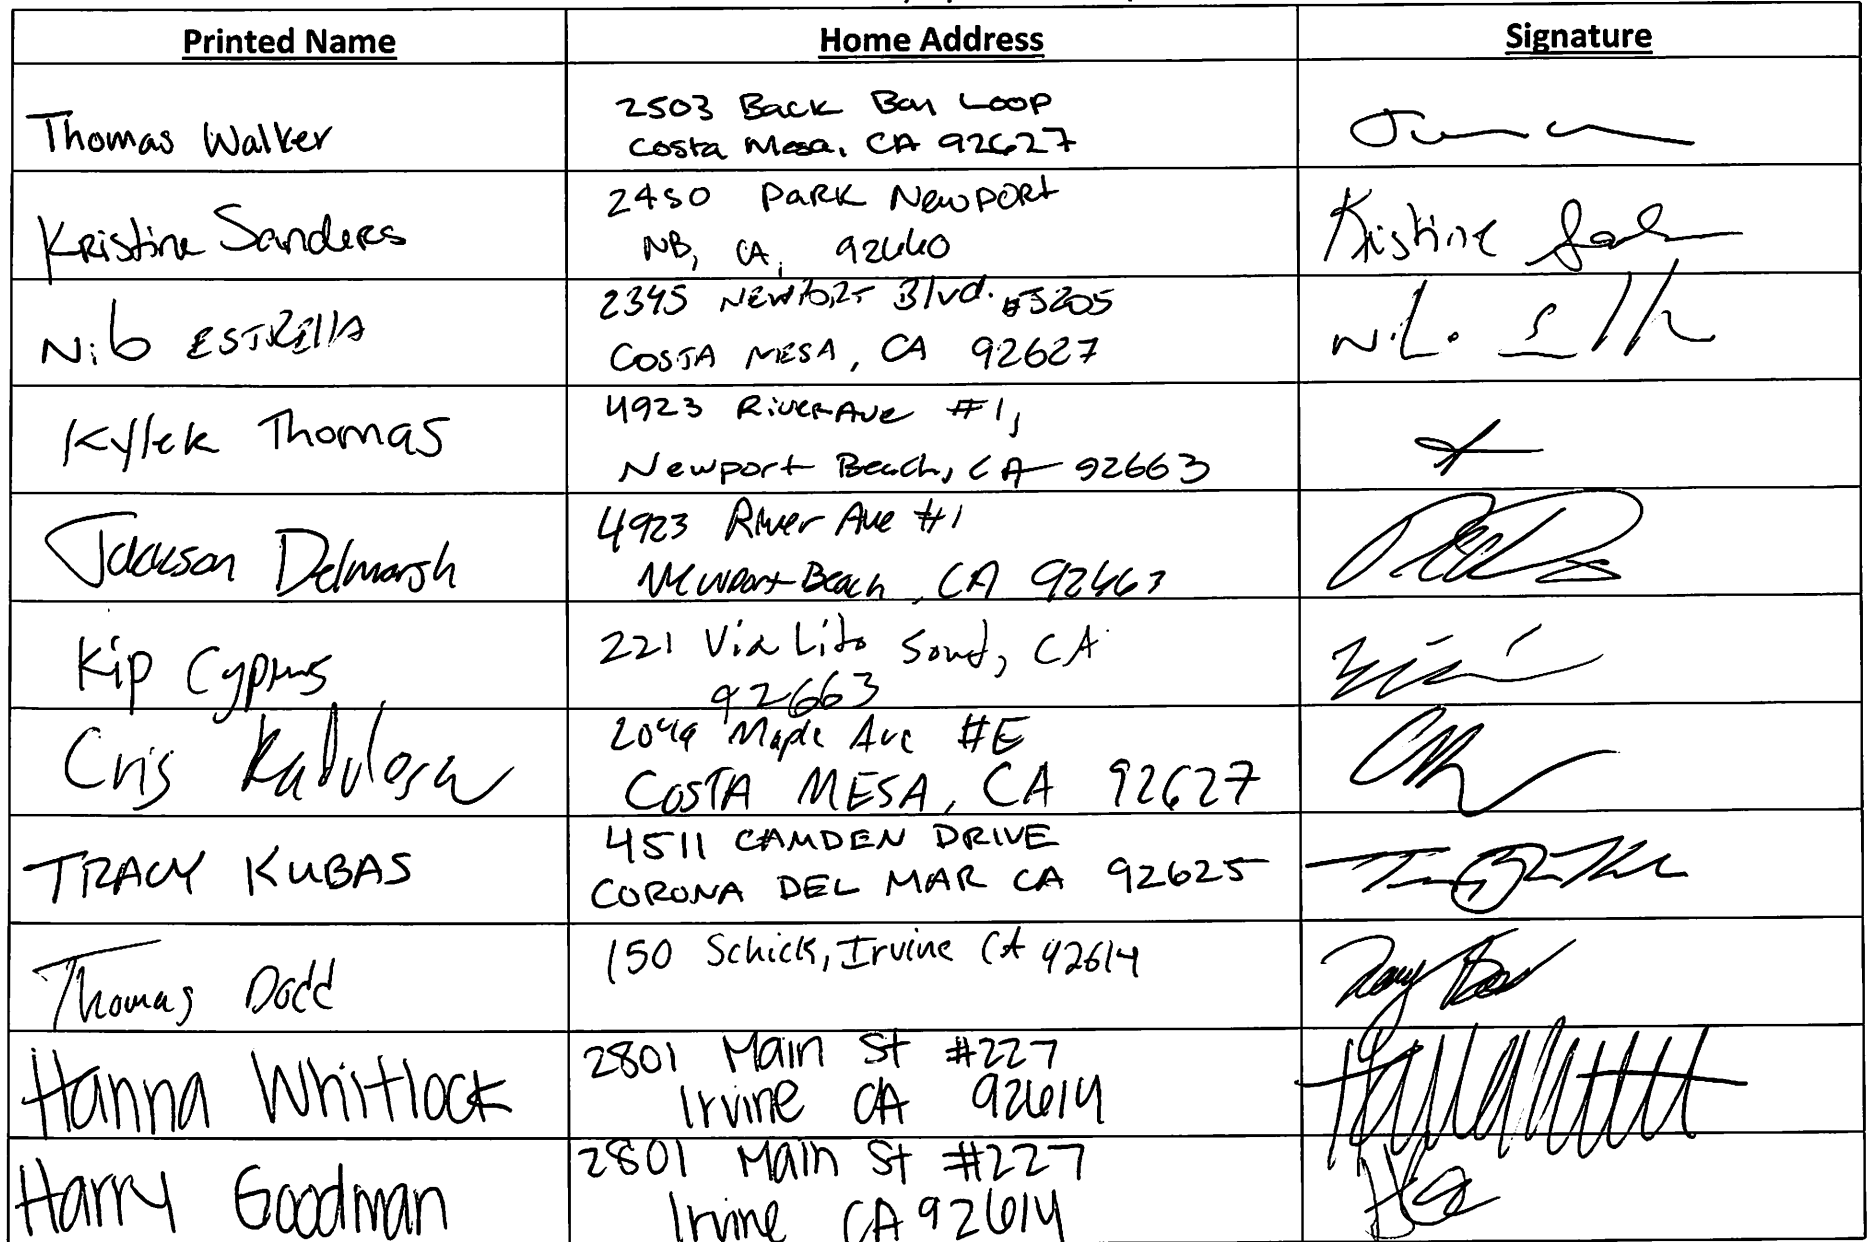 Printed Name Home Address Signature
Thomas Walker
2503 Back Bay Loop
Costa Mesa, CA 92627
Kristine Sanders
2450 Park Newport
NB, CA, 92660
Kristine
ESTRELLA
2345 Newport Blvd.
COSTA MESA, CA 92627
Thomas
4923 River Ave #1,
Newport Beach, CA 92663
Jackson Delmarsh
4923 River Ave #1
Newport Beach, CA 92663
Kip Cyprus
221 Via Lido Soud, CA
92663
Cris
2049 Maple Ave #E
COSTA MESA, CA 92627
TRACY KUBAS
4511 CAMDEN DRIVE
CORONA DEL MAR CA 92625
Thomas Dodd
150 Schick, Irvine CA 92614
Hanna Whitlock
2801 Main St #227
Irvine CA 92614
Harry Goodman
2801 Main St #227
Irvine CA 92614